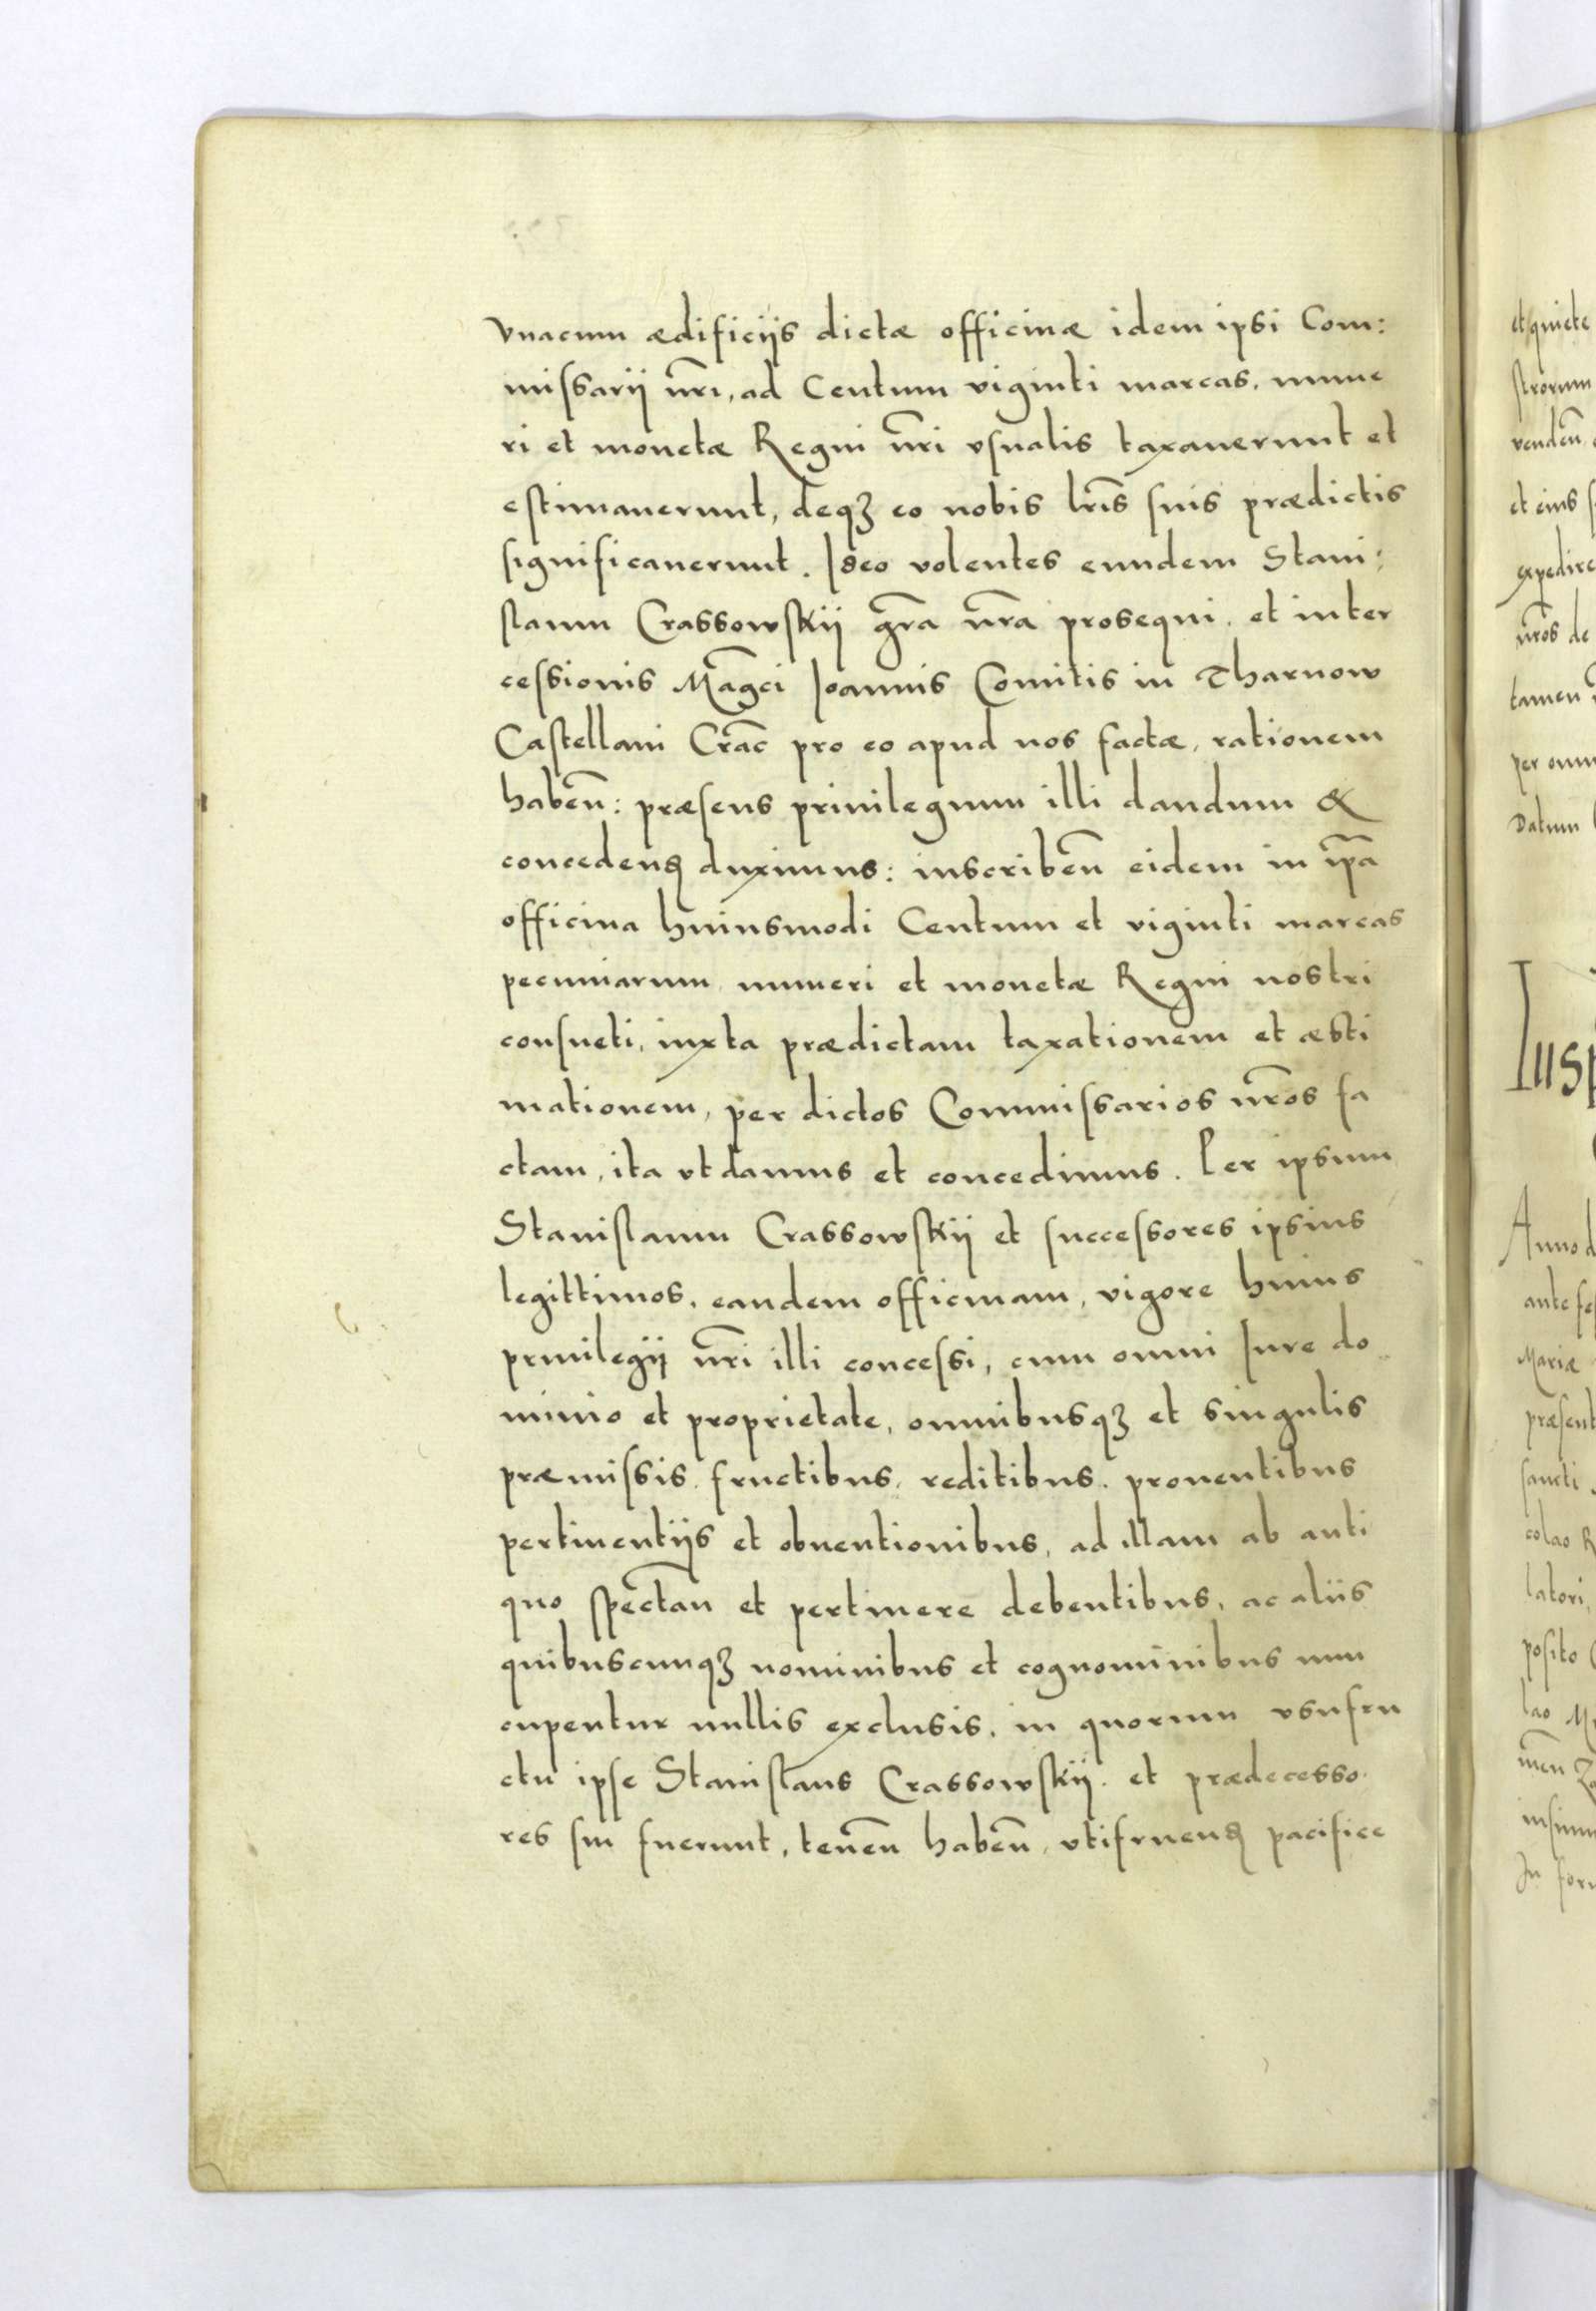 vnacum ædificijs dictæ officinæ idem ipsi Com:
missarij nr̃i, ad Centum viginti marcas, nume
ri et monetæ Regni nr̃i vsualis taxauerunt et
estimauerunt, deqꝫ eo nobis lr̃is suis prædictis
significauerunt. Ideo volentes eundem Stani:
slaum Crassowskij gr̃a nr̃a prosequi, et inter
cessionis Mag̃ci Joannis Comitis in Tharnow
Castellani Crac̃ pro eo apud nos factæ, rationem
habeñ: præsens priuilegium illi dandum &
concedenꝗ duximus: inscribeñ eidem in ip̃a
officina huiusmodi Centum et viginti marcas
pecuniarum numeri et monetæ Regni nostri
consueti, iuxta prædictam taxationem et æsti
mationem, per dictos Commissarios nr̃os fa
ctam, ita vt damus et concedimus. Per ipsum
Stanislaum Crassowskij et successores ipsius
legittimos, eandem officinam, vigore huius
priuilegij nr̃i illi concessi, cum omni Jure do
minio et proprietate, omnibusqꝫ et singulis
præmissis, fructibus, reditibus, prouentibus
pertinentijs et obuentionibus, ad illam ab anti
quo spectañ et pertinere debentibus, ac aliis
quibuscunqꝫ nominibus et cognominibus nun
cupentur nullis exclusis, in quorum vsufru
ctu ipse Stanislaus Crassowskij, et prædecesso
res sui fuerunt, teneñ habeñ, vtifruenꝗ pacifice
et quiete
strorum
vendeñ
et eius
expedire
nr̃os de
tamen
per omn
Datum
Insp
Anno d
ante fes
Mariæ
præsent
sancti
colao R
latori,
posito
lao
meñ
insinu
In for